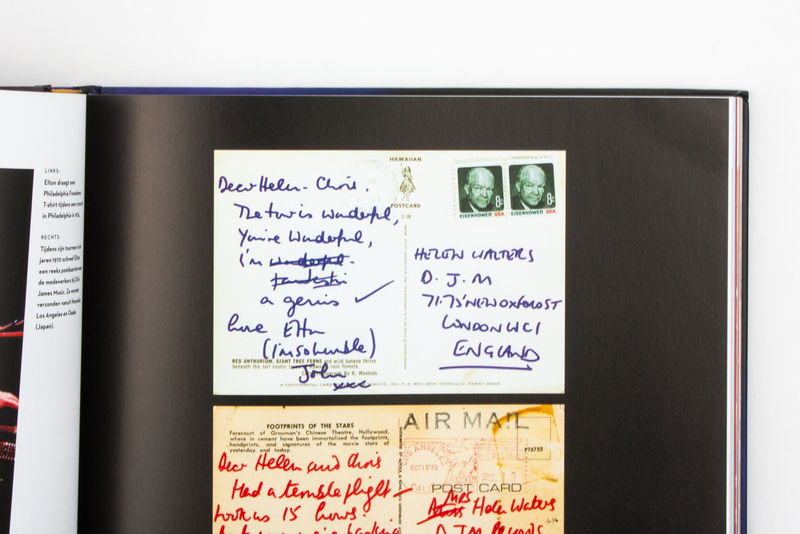 LINKS:
Elton draagt een
Philadelphia Freedom
T-shirt tijdens een concert
in Philadelphia in
RECHTS:
Tijdens zijn tournee in de
jaren 1970 schreef Elton
een reeks postkaarten aan
de medewerkers bij Dick
James Music. Ze werden
verzonden vanuit Honolulu,
Los Angeles en Osaka
(Japan).
HAWAIIAN
POSTCARD
Dear Helen - Chris.
The tour is wonderful,
You're Wonderful,
I'm wonderful -
fantastic
a genius
love Elton
(I'm so humble)
John
xxx
RED ANTHURIUM, GIANT TREE FERNS and wild banana thrive
beneath the tall exotic rain forests.
EISENHOWER USA 8c
EISENHOWER USA 8c
HELEN WALTERS
D.J.M
71-75 NEW OXFORD ST
LONDON WC1
ENGLAND
FOOTPRINTS OF THE STARS
Forecourt of Grauman's Chinese Theatre, Hollywood,
where in cement have been immortalized the footprints,
handprints, and signatures of the movie stars of
yesterday and today.
AIR MAIL
P76755
POST CARD
Dear Helen and Chris
Had a terrible flight -
took us 15 hours.
Mrs
Helen Walters
DJM Records